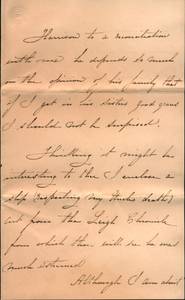 Harrison to a
with me he depends so much
on the opinion of his family that
if I get in his sisters good graces
I should not be surprised.
Thinking it might be
interesting to you I enclose a
slip (respecting my Uncle's death)
cut from the Leigh Chronicle
from which you will see he was
much esteemed
Although I am about